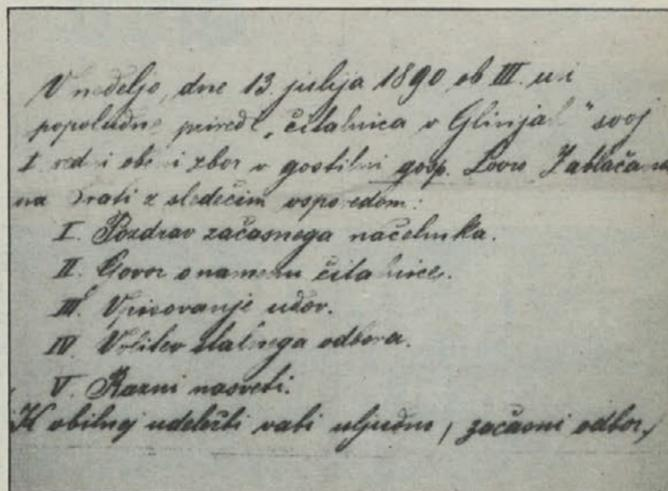 V nedeljo, dne 13. julija 1890 ob III. uri
popoludne priredi „čitalnica v Glinjah" svoj
I. redni občni zbor v gostilni gosp. Lovro Jablača
na Trati z sledečim vsporedom:
I. Pozdrav začasnega načelnika.
II. Govor o namenu čitalnice.
III. Vpisovanje udov.
IV. Volitev stalnega odbora.
V. Razni nasveti.
K obilnej udeležbi vabi uljudno začasni odbor,